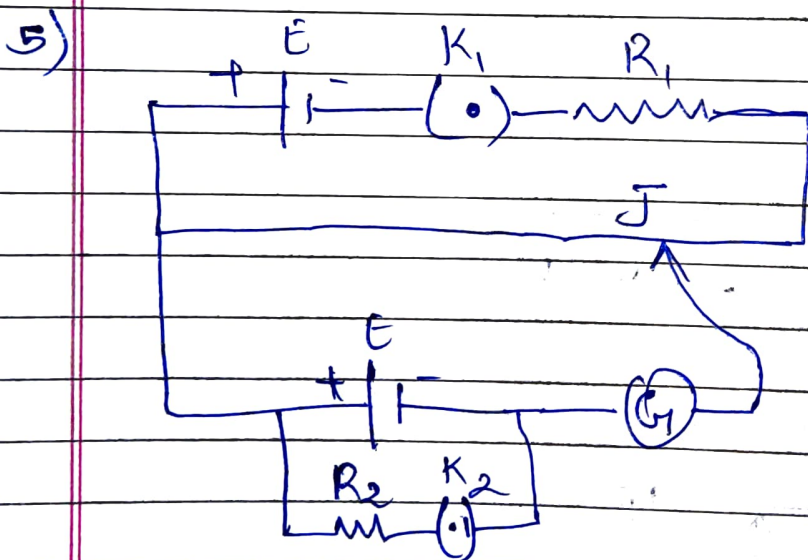 5)
E K₁ R₁
+ -
J
E
+ -
G
R₂ K₂